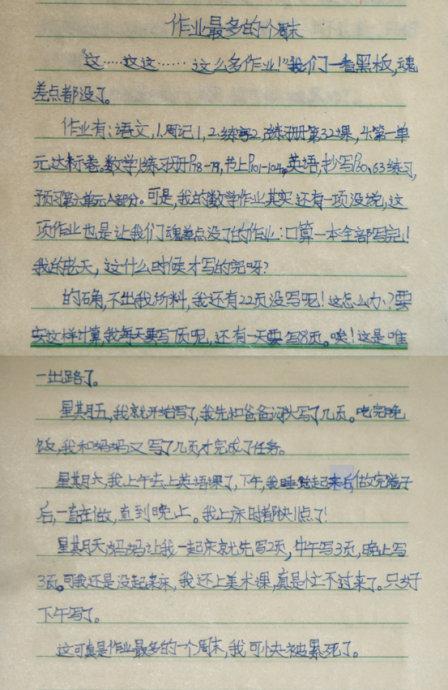 作业最多的一个周末
“这……这这……这么多作业!”我们一看黑板,魂
差点都没了。
作业有:语文,1.周记1,2.练写2,3.练习册第32课,4.第一单
元达标卷,数学,练习册P78-79,书上P101-104,英语,抄写P60,63练习,
预习第六单元A部分。可是,我的数学作业其实还有一项没说,这
项作业也是让我们魂差点没了的作业:口算一本全部写完!
我的老天,这什么时候才写的完呀?
的确,不出我所料,我还有22页没写呢!这怎么办?要
按这样计算,我每天要写7页呢,还有一天要写8页。唉!这是唯
一出路了。
星期五,我就开始写了,我先和爸爸写了几页。吃完晚
饭,我和妈妈又写了几页才完成了任务。
星期六,我上午去上英语课了,下午,我睡觉起来后,做完卷子
后,一直在做,直到晚上。我上床时都快11点了!
星期天妈妈让我一起床就先写2页,中午写3页,晚上写
3页。可我还是没起来床,我还上美术课,真是忙不过来了。只好
下午写了。
这可真是作业最多的一个周末,我可快被累死了。